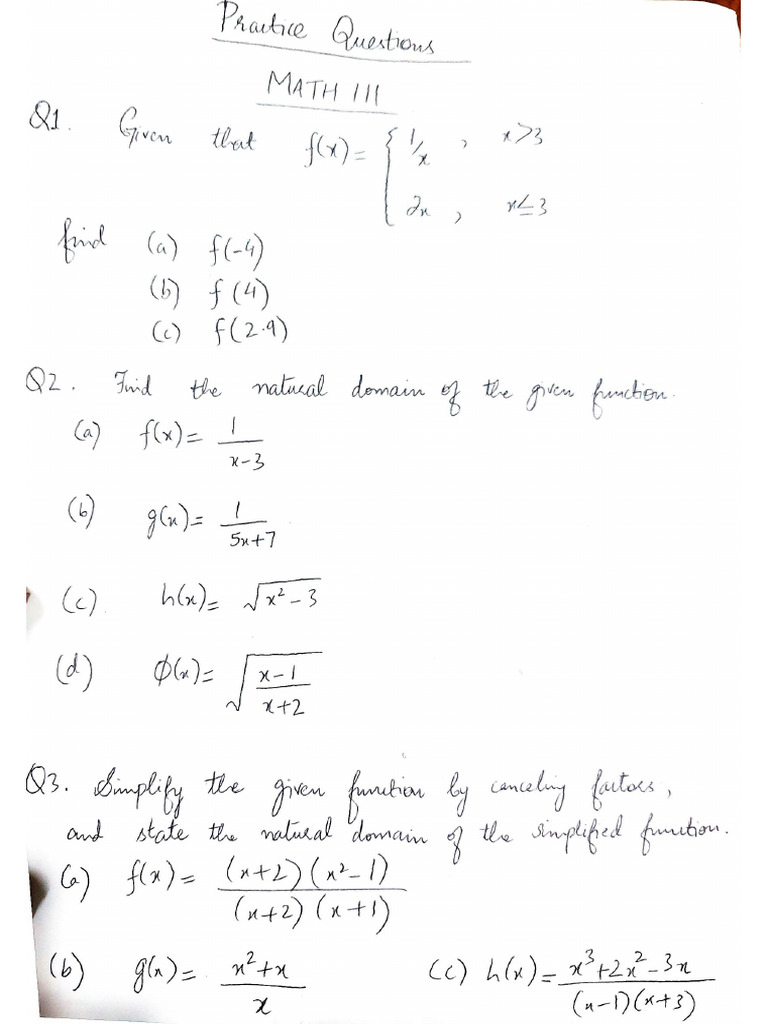 Practice Questions
MATH 111
Q1. Given that f(x) = { 1/x , x>3
2x , x≤3
find (a) f(-4)
(b) f(4)
(c) f(2.9)
Q2. Find the natural domain of the given function.
(a) f(x) = 1/(x-3)
(b) g(x) = 1/(5x+7)
(c) h(x) = √(x²-3)
(d) ϕ(x) = √((x-1)/(x+2))
Q3. Simplify the given function by canceling factors,
and state the natural domain of the simplified function.
(a) f(x) = (x+2)(x²-1)/((x+2)(x+1))
(b) g(x) = (x²+x)/x (c) h(x) = (x³+2x²-3x)/((x-1)(x+3))